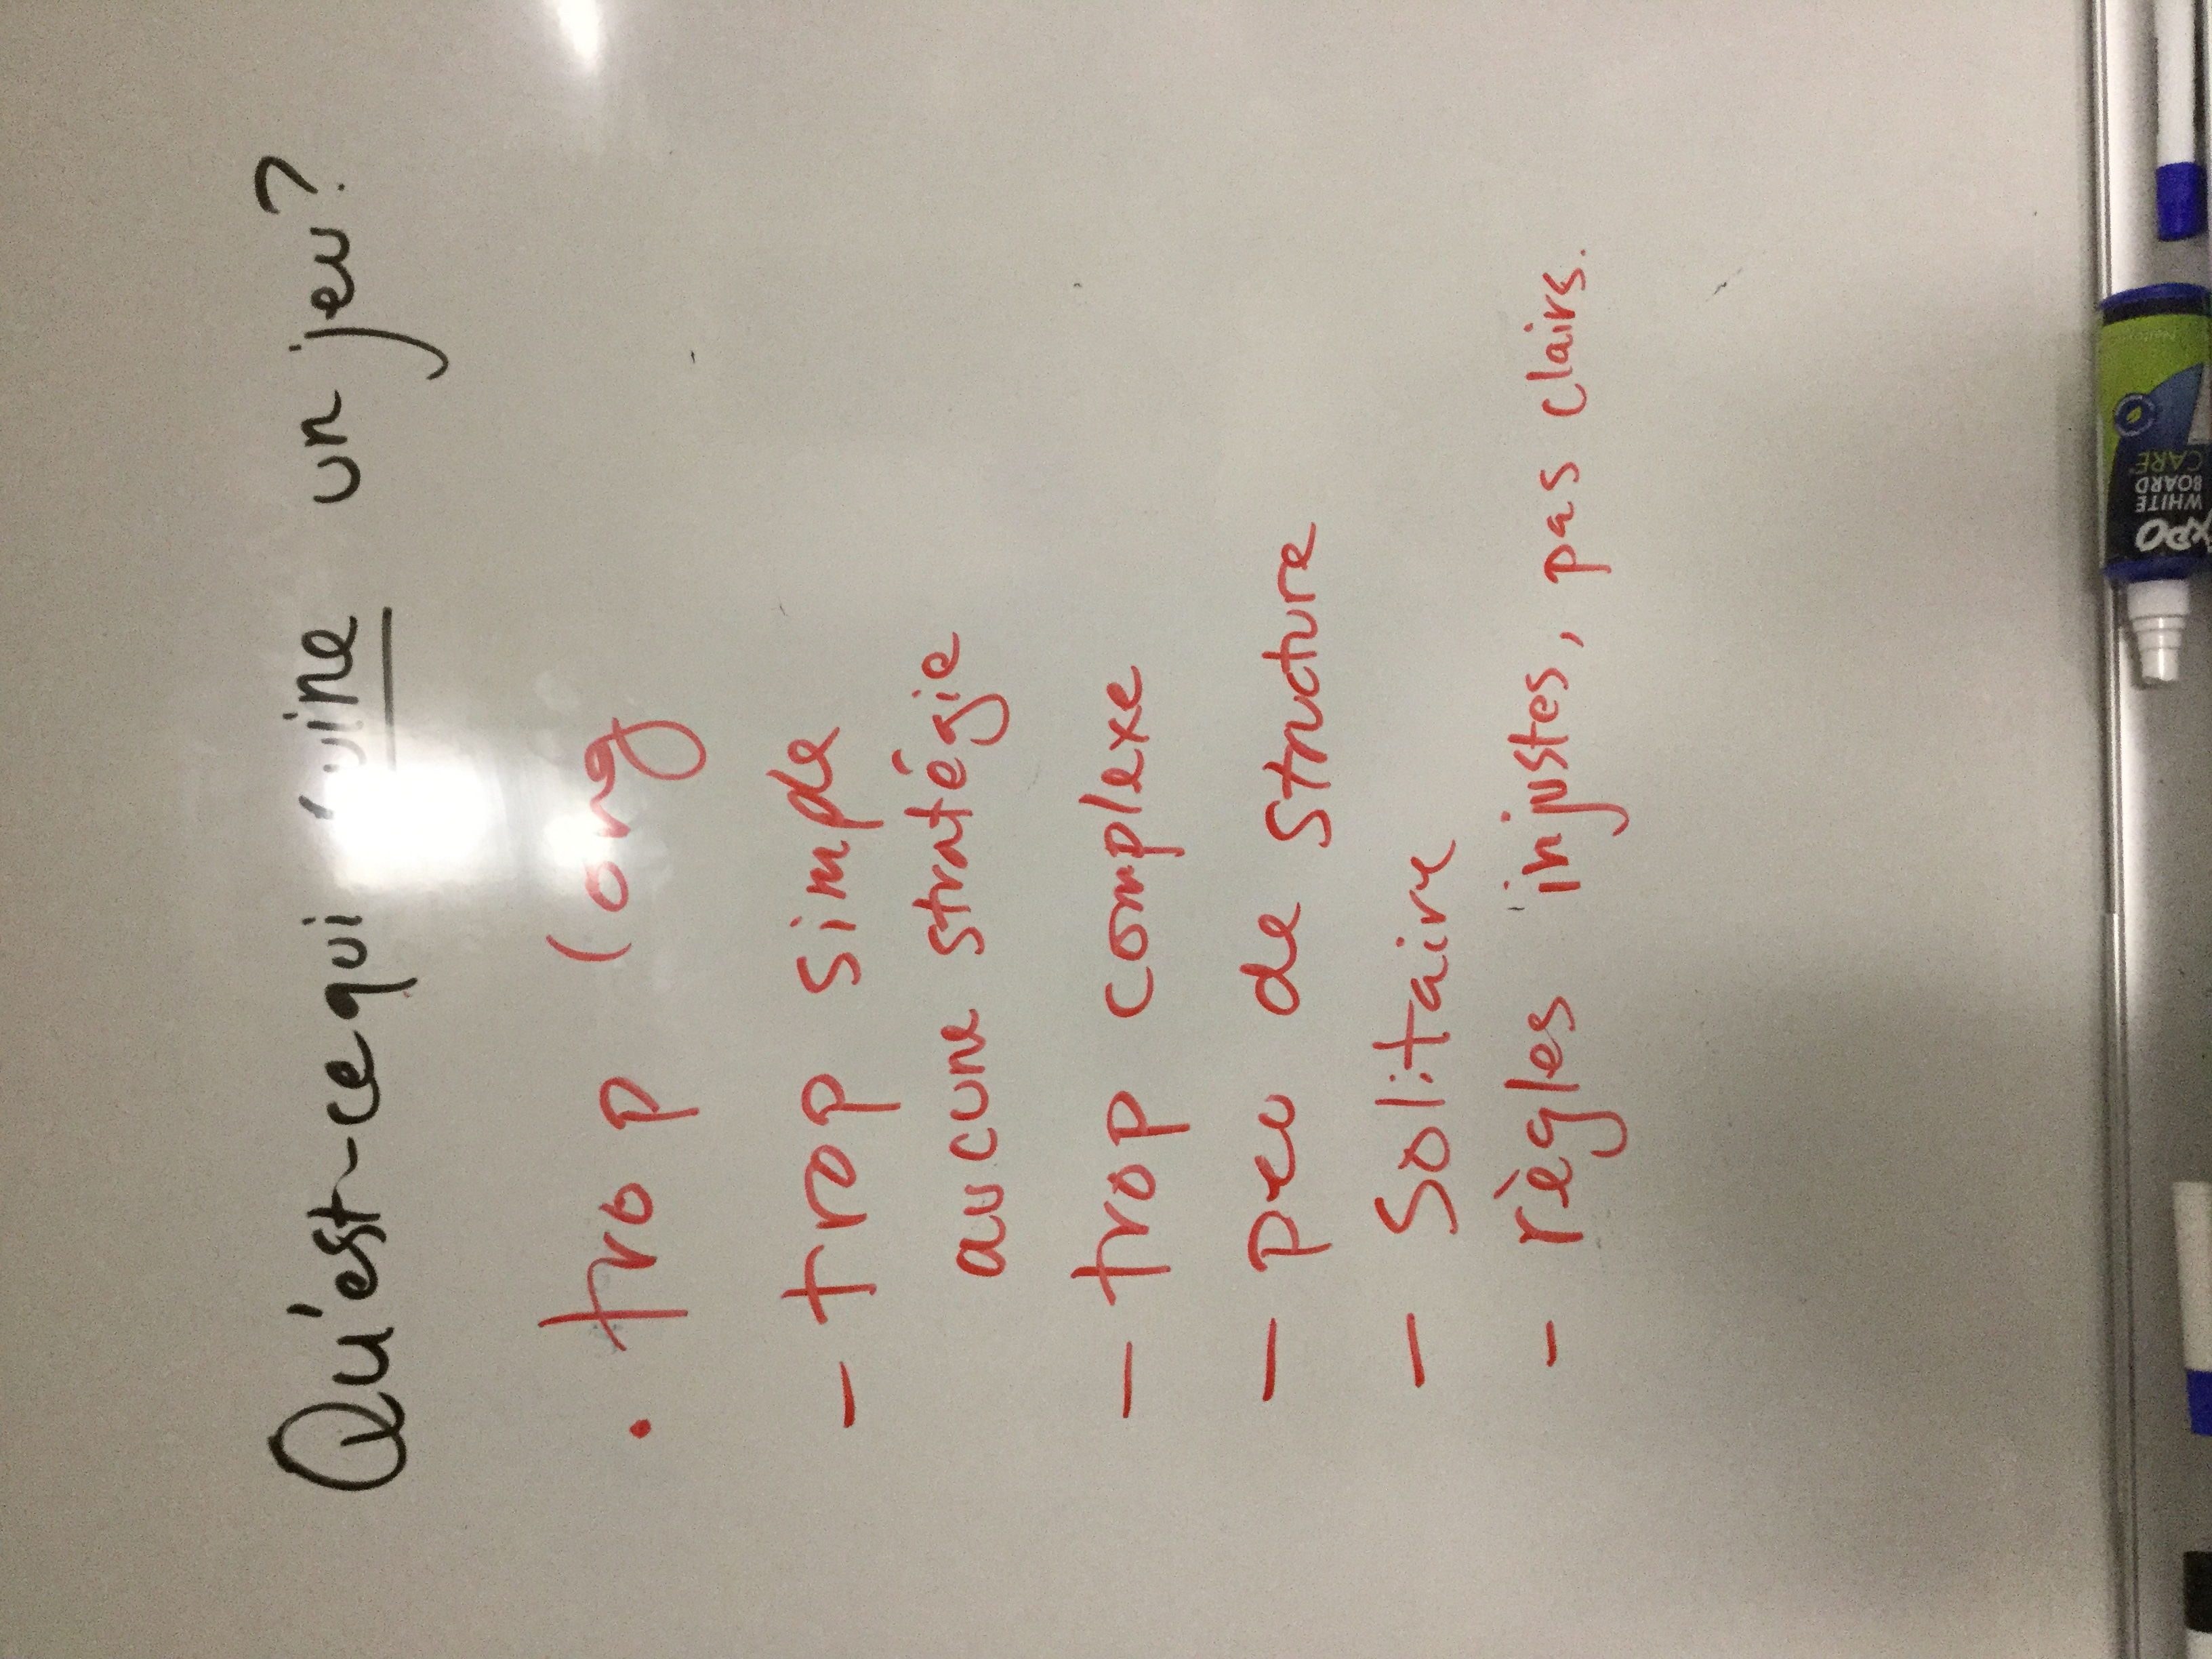 Qu'est-ce qui ruine un jeu?
• trop long
- trop simple
aucune stratégie
- trop complexe
- peu de structure
- Solitaire
- règles injustes, pas clairs.
EXPO
WHITE
BOARD
CARE